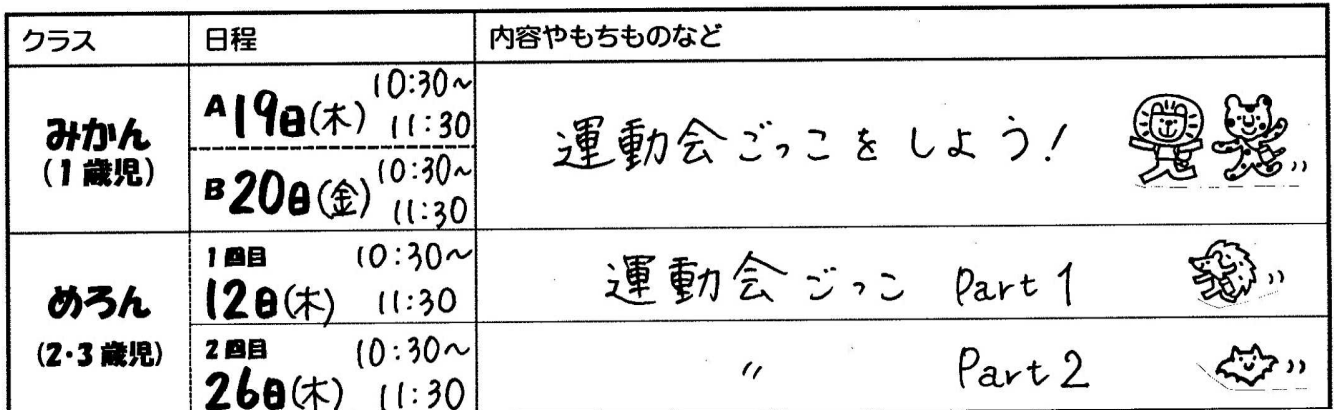 クラス 日程 内容やもちものなど
みかん
(1歳児)
A 19日(木) 10:30~
11:30
運動会ごっこをしよう!
B 20日(金) 10:30~
11:30
めろん
(2・3歳児)
1回目 10:30~
12日(木) 11:30
運動会ごっこ Part 1
2回目 10:30~
26日(木) 11:30
〃 Part 2